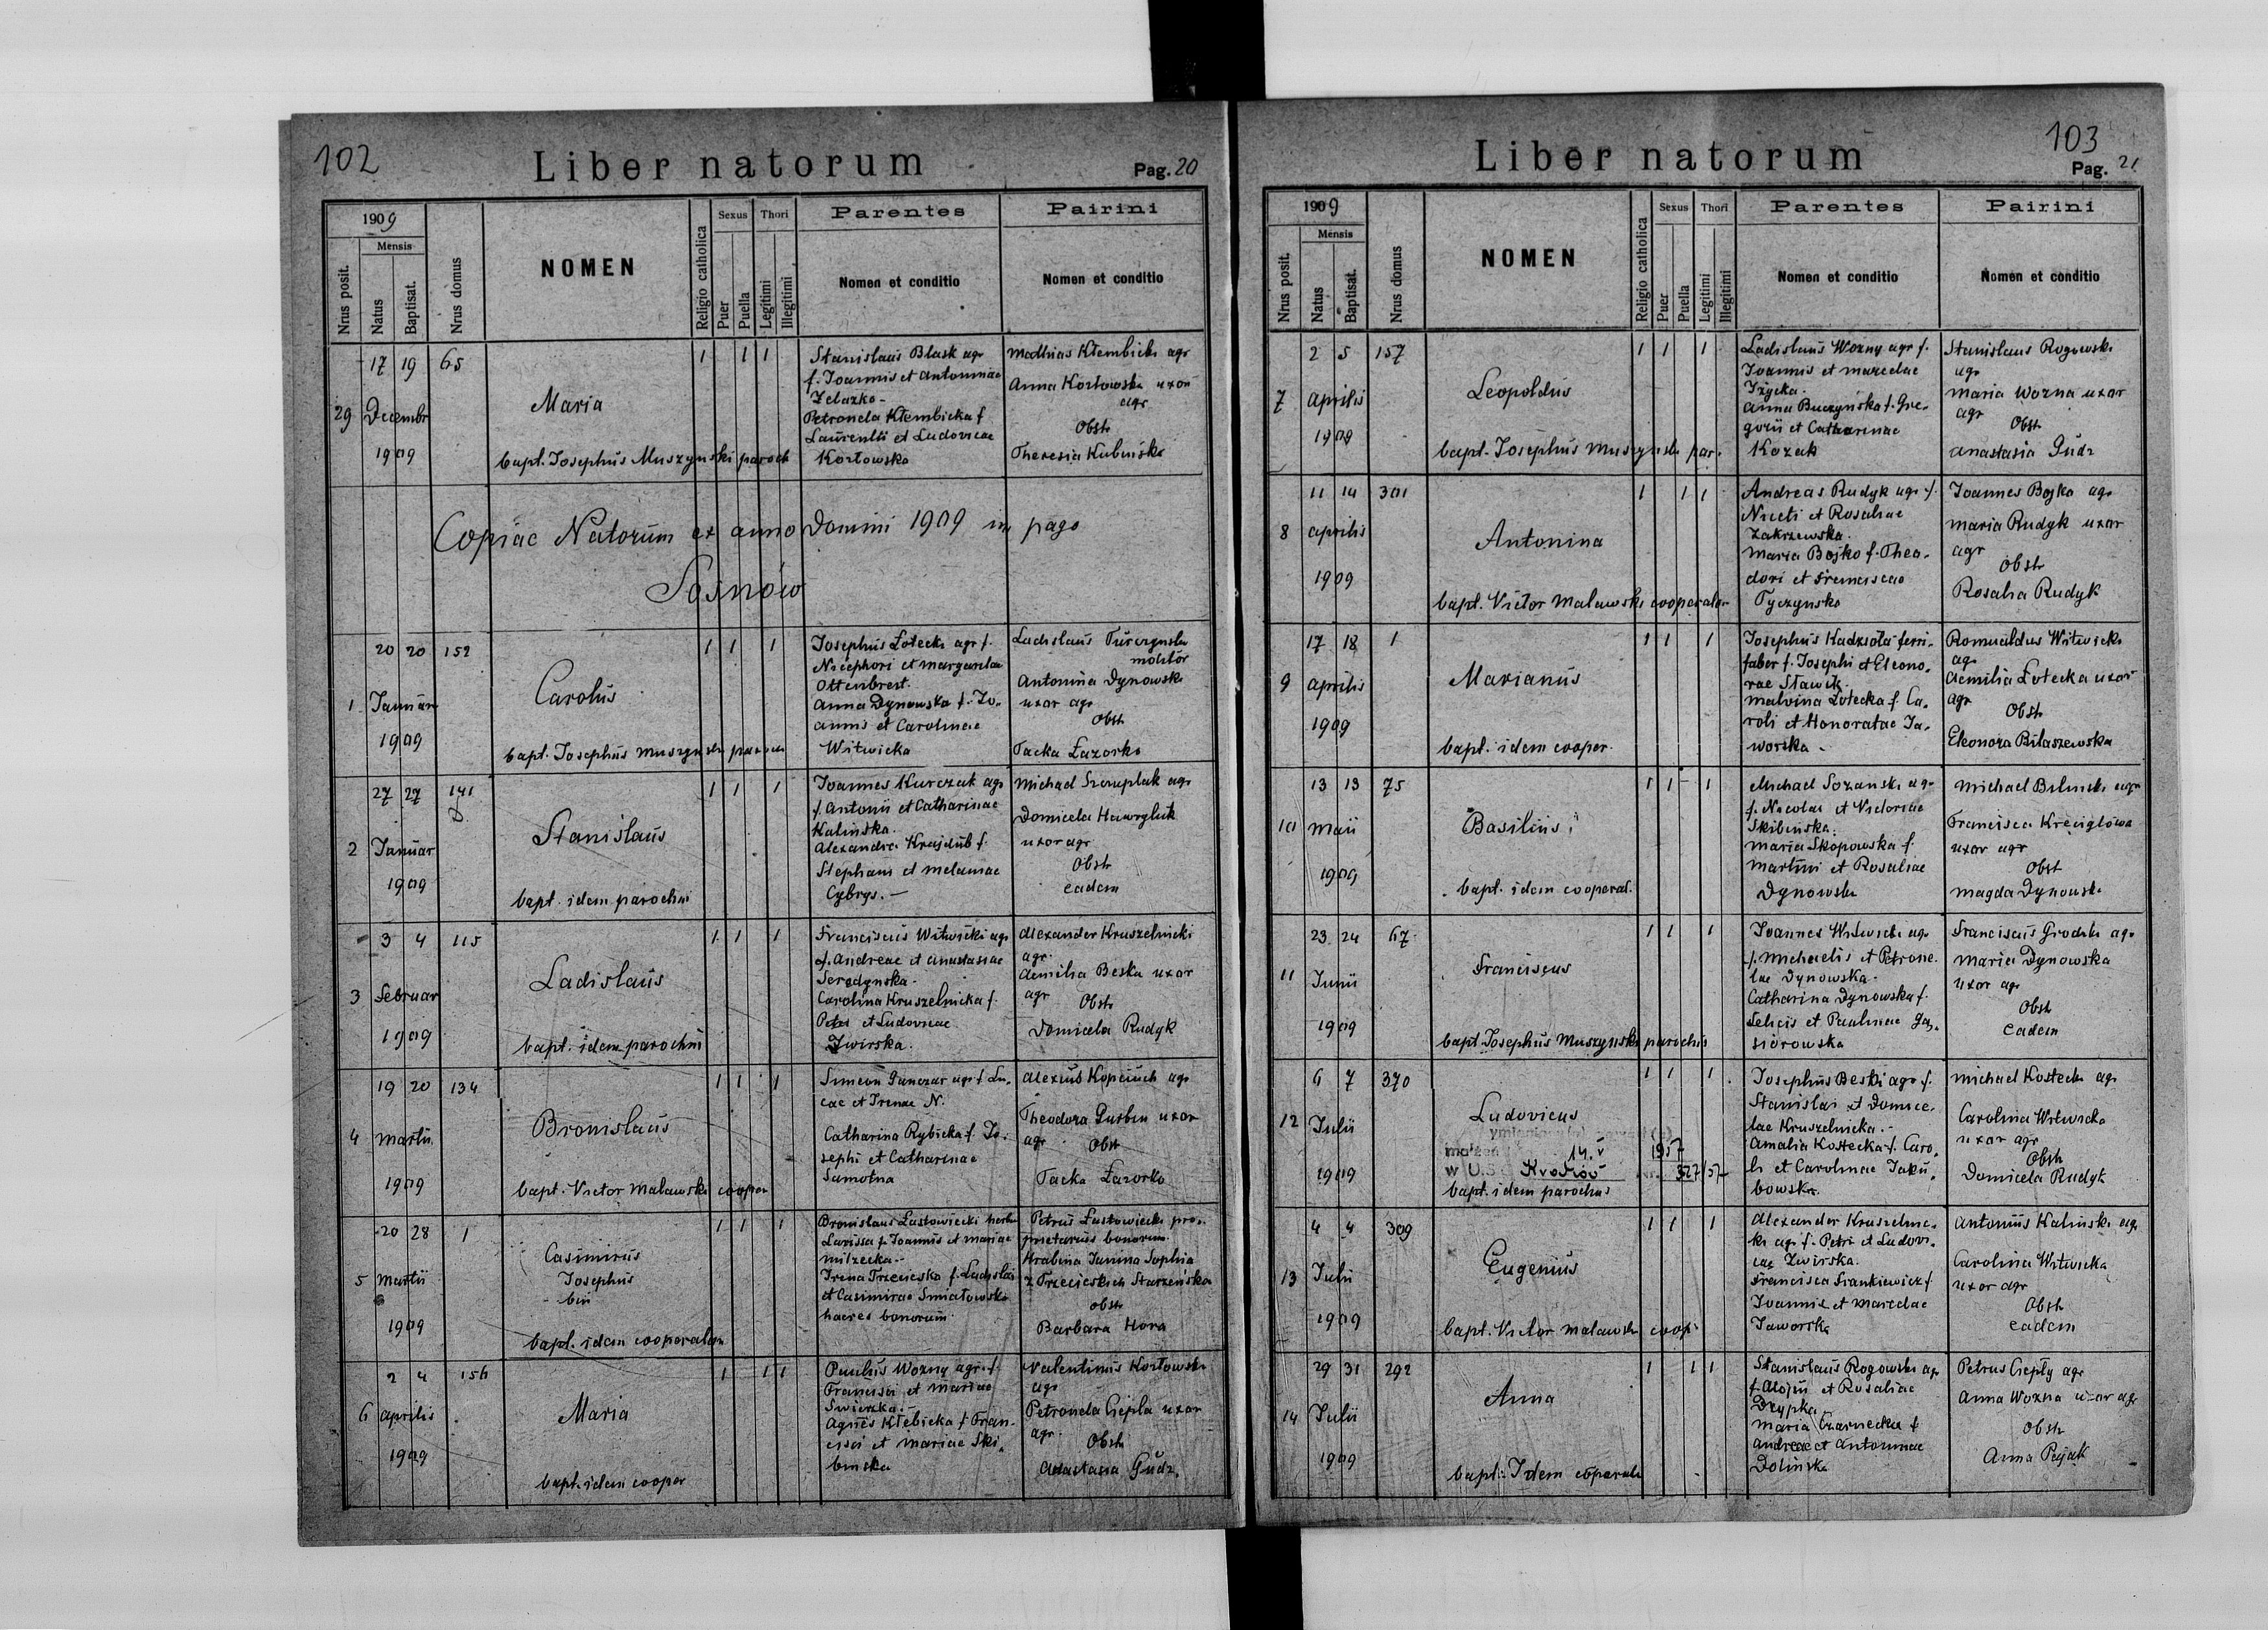 102
Liber natorum
Pag. 20
1909
Mensis
Nrus posit.
Natus
Baptisat.
Nrus domus
NOMEN
Religio catholica
Sexus
Puer
Puella
Thori
Legitimi
Illegitimi
Parentes
Nomen et conditio
Patrini
Nomen et conditio
29
17 19 65
Decembr
1909
Maria
bapt. Josephus Muszynski paroch
1 1 1
Stanislaus Blask agr
f. Joannis et Antoninae
Zelazko -
Petronela Kłembicka f
Laurentii et Ludovicae
Kozłowska
Mathias Kłembicki agr
Anna Kozłowska uxor
agr
Obst
Theresia Kubińska
Copiae Natorum ex anno Domini 1909 in pago
Sosnów
1
20 20 152
Januar
1909
Carolus
bapt. Josephus Muszynski paroch
1 1 1
Josephus Łotecki agr f.
Nicephori et Margaritae
Ottenbreit.
Anna Dynowska f. Jo-
annis et Carolinae
Witwicka
Ladislaus Turczynski
molitor
Antonina Dynowska
uxor agr
Obst
Tacka Łazorko
2
27 27 141
Januar
1909
Stanislaus
bapt. idem parochus
1 1 1
Joannes Kurczak agr
f. Antonii et Catharinae
Kalinska.
Alexandra Krajdub f.
Stephani et Melaniae
Cybrys. -
Michael Szczuplak agr
Domicela Hawryluk
uxor agr
Obst
eadem
3
3 4 115
Februar
1909
Ladislaus
bapt. idem parochus
1 1 1
Franciscus Witwicki agr
f. Andreae et Anastasiae
Seredynska -
Carolina Kruszelnicka f.
Petri et Ludovicae
Zwirska.
Alexander Kruszelnicki
agr.
Aemilia Beska uxor
agr
Obst
Domicela Rudyk
4
19 20 134
Martii
1909
Bronislaus
bapt. Victor Malawski cooper
1 1 1
Simeon Ganczar agr f Lu-
cae et Irenae N.
Catharina Rybicka f. Jo-
sephi et Catharinae
Samotna
Alexius Kopciuch agr
Theodora Gurbin uxor
agr
Obst
Tacka Łazorko
5
20 28 1
Martii
1909
Casimirus
Josephus
bin
bapt. idem cooperator
1 1 1
Bronislaus Łastowiecki
f. Joannis et Mariae
Milzecka -
Irena Trzecieska f. Ladislai
et Casimirae Smiałowska
haeres bonorum
Petrus Łastowiecki pro-
prietarius bonorum
Hrabina Janina Sophia
z Trzecieskich Starzeńska
obst
Barbara Hora
6
2 4 156
Aprilis
1909
Maria
bapt. idem cooper
1 1 1
Paulus Wozny agr f.
Francisci et Mariae
Świerzka. -
Agnes Kłebicka f Fran-
cisci et Mariae Ski-
binska
Valentinus Kozłowski
agr
Petronela Ciepła uxor
agr.
Obst
Anastasia Gudz.
103
Liber natorum
Pag. 21
1909
Mensis
Nrus posit.
Natus
Baptisat.
Nrus domus
NOMEN
Religio catholica
Sexus
Puer
Puella
Thori
Legitimi
Illegitimi
Parentes
Nomen et conditio
Patrini
Nomen et conditio
7
2 5 157
Aprilis
1909
Leopoldus
bapt. Josephus Muszynski par.
1 1 1
Ladislaus Wozny agr f.
Joannis et Marcelae
Izycka.
Anna Buczynska f. Gre-
gorii et Catharinae
Kozak
Stanislaus Rogowski
agr
Maria Wozna uxor
agr
Obst
Anastasia Gudz
8
11 14 301
Aprilis
1909
Antonina
bapt. Victor Malawski cooperator
1 1 1
Andreas Rudyk agr f.
Niceti et Rosaliae
Zakrzewska.
Maria Bojko f. Theo-
dori et Franciscae
Tyczynska
Joannes Bojko agr
Maria Rudyk uxor
agr
Obst
Rosalia Rudyk
9
17 18 1
Aprilis
1909
Marianus
bapt. idem cooper.
1 1 1
Josephus Kadzioła ferri-
faber f. Josephi et Eleono-
rae Stawik.
Malvina Łotecka f. Ca-
roli et Honoratae Ja-
worska -
Romualdus Witwicki
agr
Aemilia Łotecka uxor
agr
Obst
Eleonora Bilaszewska
10
13 13 75
Maii
1909
Basilius
bapt. idem cooperat.
1 1 1
Michael Sozanski agr
f. Nicolai et Victoriae
Skibinska.
Maria Skopowska f.
Martini et Rosaliae
Dynowska
Michael Bilinski agr
Francisca Kręciglowa
uxor agr
Obst
Magda Dynowska
11
23 24 67
Junii
1909
Franciscus
bapt Josephus Muszynski parochus
1 1 1
Joannes Witwicki agr
f. Michaelis et Petrone-
lae Dynowska -
Catharina Dynowska f.
Felicis et Paulinae Ga-
siorowska
Franciscus Grodzki agr
Maria Dynowska
uxor agr
Obst
eadem
12
6 7 370
Julii
1909
Ludovicus
małżeń
14. V 1957
w U.S. Kraków
Nr. 327/57
bapt. idem parochus
1 1 1
Josephus Beski agr f.
Stanislai et Domice-
lae Kruszelnicka. -
Amalia Kostecka f. Caro-
li et Carolinae Jaku-
bowska.
Michael Kostecki agr
Carolina Witwicka
uxor agr
Obst
Domicela Rudyk
13
4 4 309
Julii
1909
Eugenius
bapt. Victor Malawski coop.
1 1 1
Alexander Kruszelnic-
ki agr f. Petri et Ludovi-
cae Zwirska.
Francisca Frankiewicz f
Joannis et Marcelae
Jaworska
Antonius Kalinski agr
Carolina Witwicka
uxor agr
Obst
eadem
14
29 31 292
Julii
1909
Anna
bapt. Idem cooperat.
1 1 1
Stanislaus Rogowski agr
f. Alojzii et Rosaliae
Drypka
Maria Czarnecka f
Andreae et Antoninae
Dolinska
Petrus Ciepły agr
Anna Wozna uxor agr
Obst
Anna Pajak